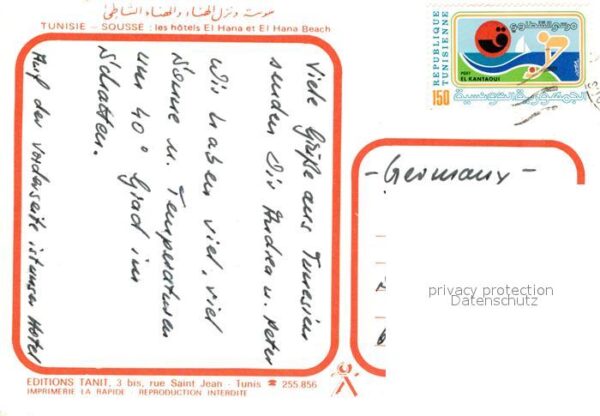 سوسة ونزل الهناء والهناء الشاطئ
TUNISIE - SOUSSE : les hôtels El Hana et El Hana Beach
Viele Grüße aus Tunesien
senden Dir Andrea u. Peter
Wir haben viel, viel
Sonne u. Temperaturen
um 40° Grad im
Schatten.
Auf der Vorderseite ist unser Hotel
REPUBLIQUE
TUNISIENNE
150
مرسى القنطاوي
PORT
EL KANTAOUI
الجمهورية التونسية
- Germany -
privacy protection
Datenschutz
EDITIONS TANIT, 3 bis, rue Saint Jean - Tunis ☎ 255.856
IMPRIMERIE LA RAPIDE - REPRODUCTION INTERDITE